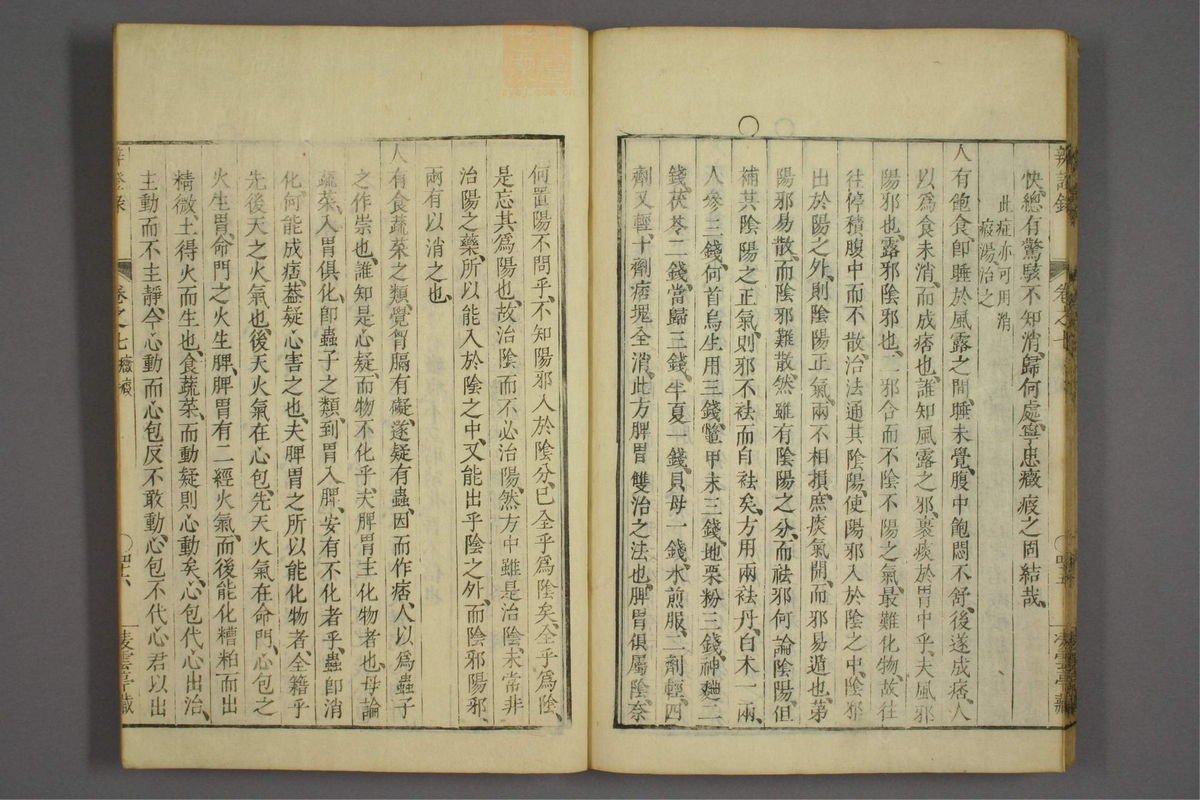 快總有驚駭不知消歸何處寧患癥瘕之固結哉
此症亦可用消
瘕湯治之
人有飽食卽睡於風露之間睡未覺腹中飽悶不舒後遂成痞人
以爲食未消而成痞也誰知風露之邪裹痰於胃中乎夫風邪
陽邪也露邪陰邪也二邪合而不陰不陽之氣最難化物故往
往停積腹中而不散治法通其陰陽使陽邪入於陰之中陰邪
出於陽之外則陰陽正氣兩不相損庶痰氣開而邪易遁也第
陽邪易散而陰邪難散然雖有陰陽之分而祛邪何論陰陽但
補其陰陽之正氣則邪不祛而自祛矣方用兩祛丹白木一兩
人參三錢何首烏生用三錢鱉甲末三錢地栗粉三錢神麯二
錢茯苓二錢當歸三錢半夏一錢貝母一錢水煎服二劑輕四
劑又輕十劑痞塊全消此方脾胃雙治之法也脾胃俱屬陰奈
辨證錄
卷之七
四五
凌雲亭藏
何置陽不問乎不知陽邪入於陰分已全乎爲陰矣全乎爲陰
是忘其爲陽也故治陰而不必治陽然方中雖是治陰未常非
治陽之藥所以能入於陰之中又能出乎陰之外而陰邪陽邪
兩有以消之也
人有食蔬菜之類覺胷膈有礙遂疑有蟲因而作痞人以爲蟲子
之作祟也誰知是心疑而物不化乎夫脾胃主化物者也毋論
蔬菜入胃俱化卽蟲子之類到胃入脾安有不化者乎蟲卽消
化何能成痞葢疑心害之也夫脾胃之所以能化物者全籍乎
先後天之火氣也後天火氣在心包先天火氣在命門心包之
火生胃命門之火生脾脾胃有二經火氣而後能化糟粕而出
精微土得火而生也食蔬菜而動疑則心動矣心包代心出治
主動而不主靜今心動而心包反不敢動心包不代心君以出
卷之七
癥瘕
四六
凌雲亭藏